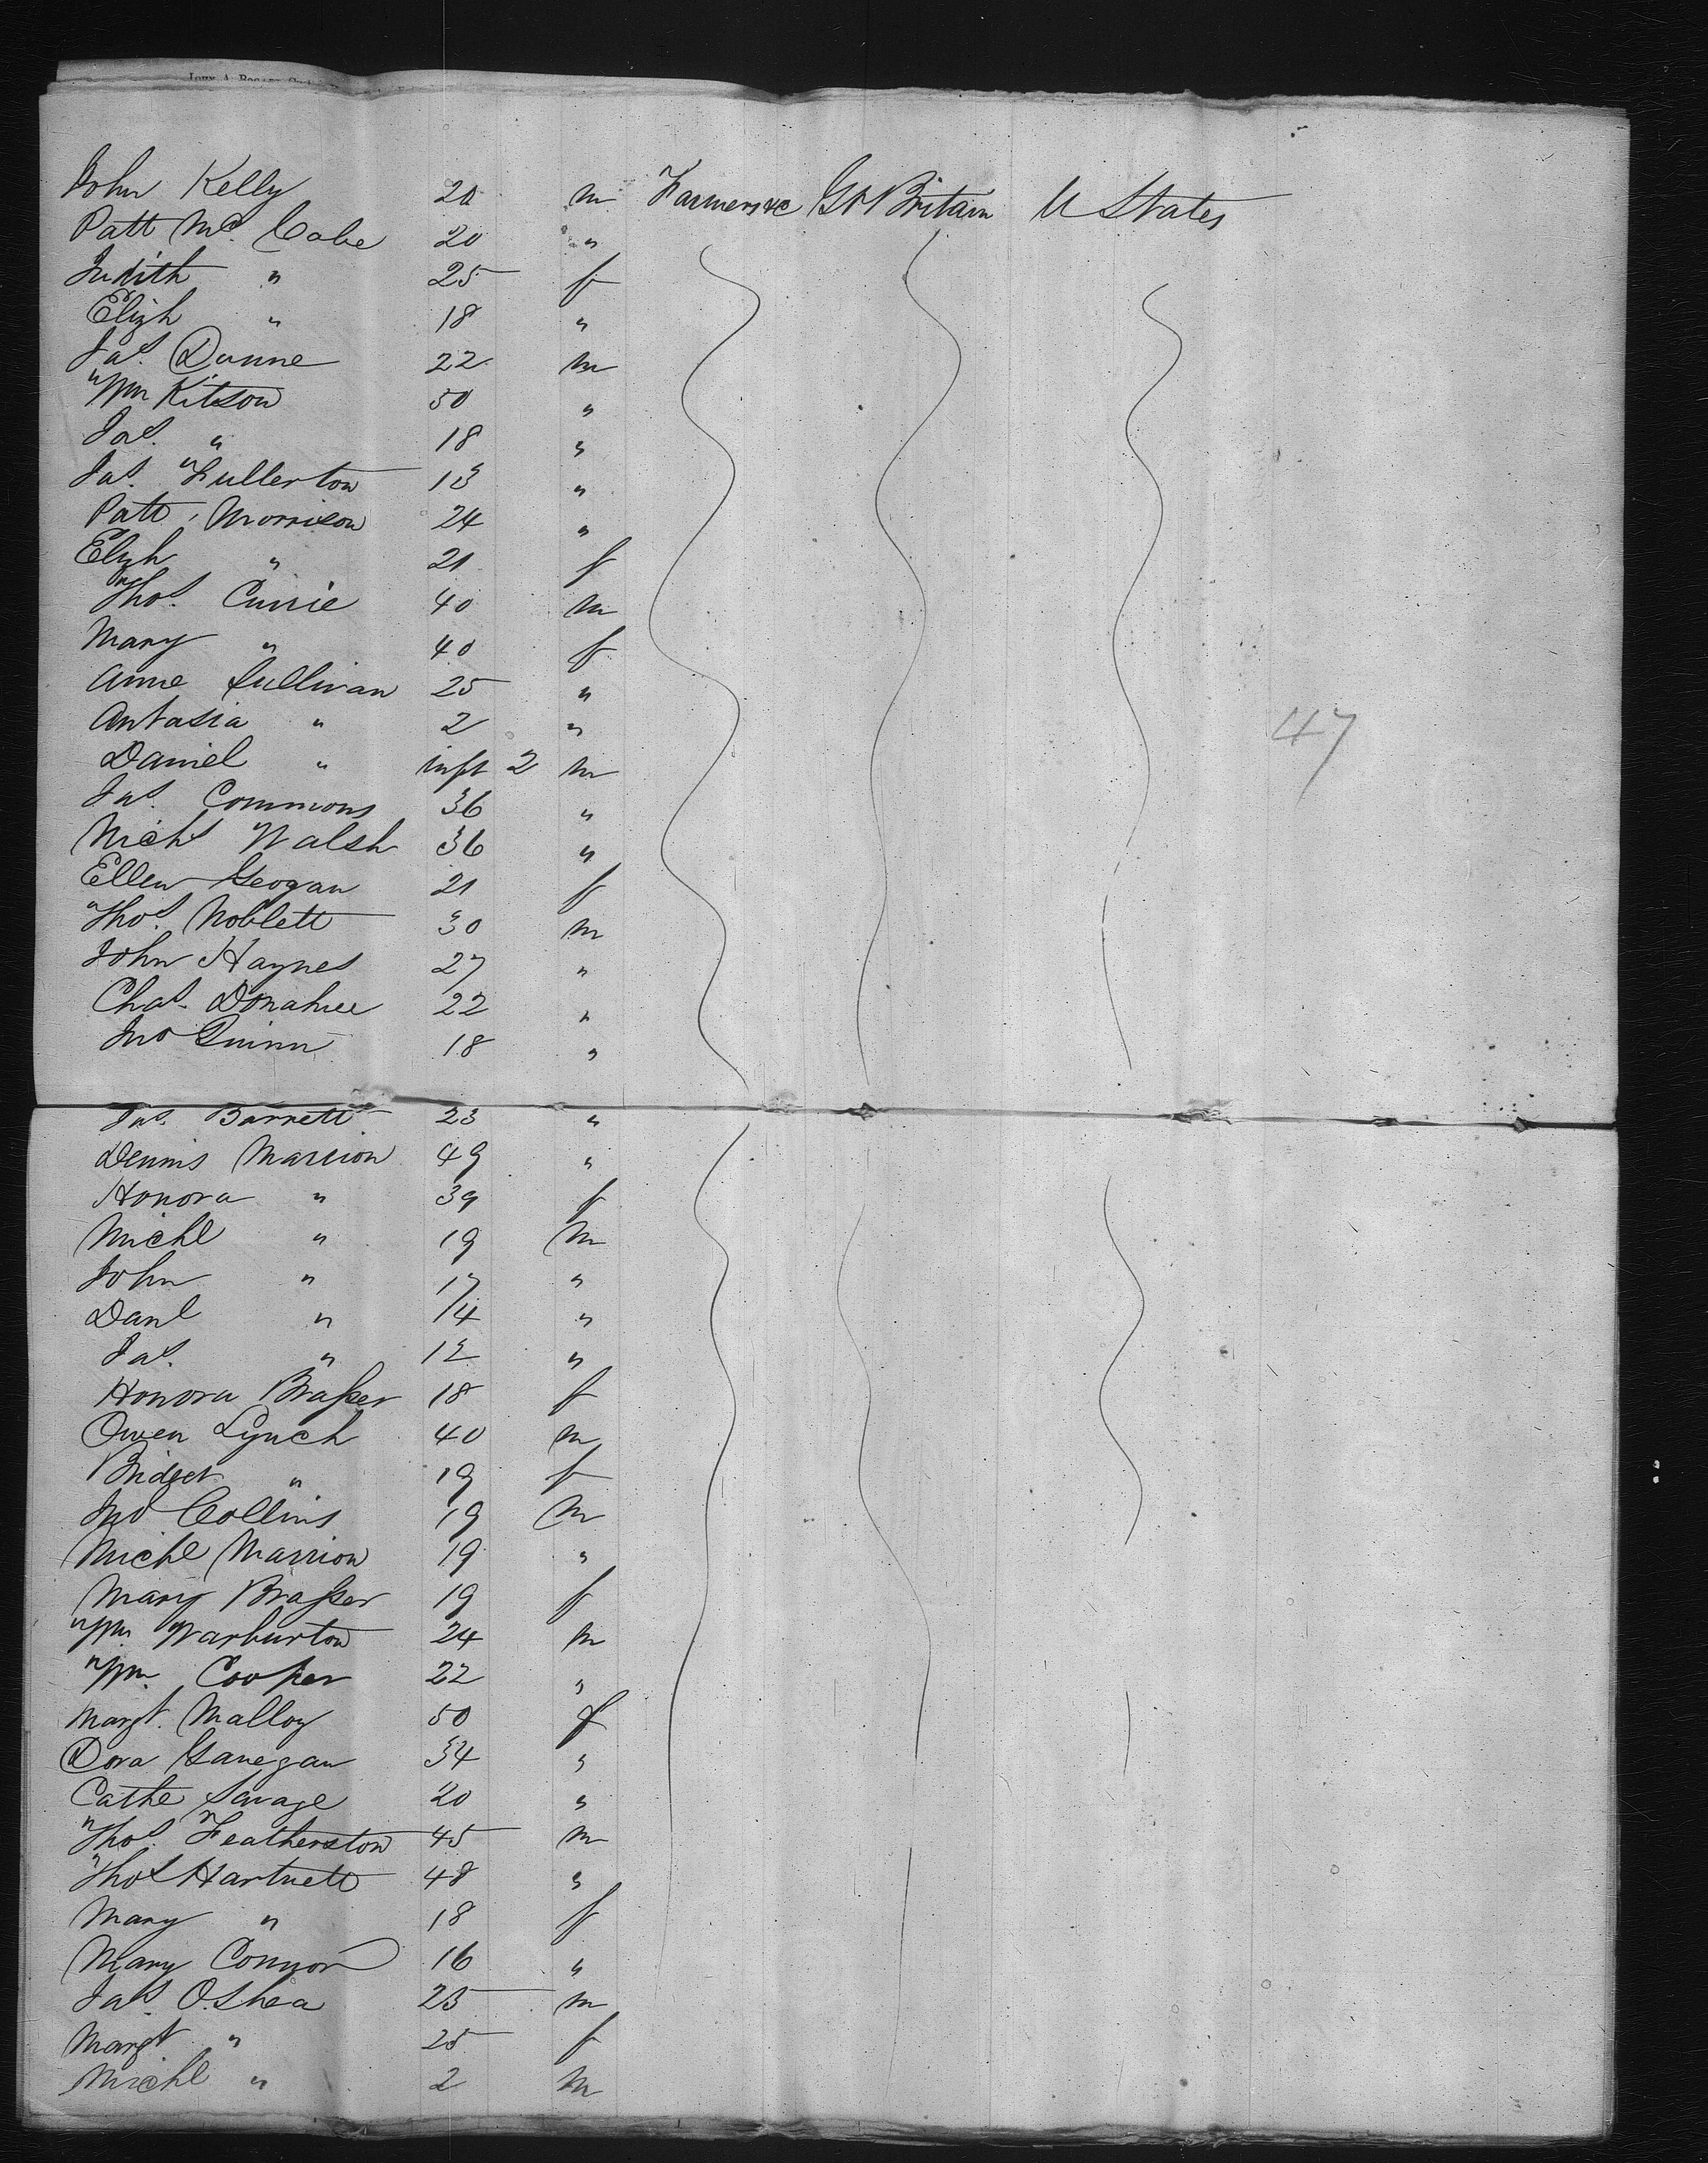 John Kelly 20 m Farmers &c Gt Britain U States
Patt Mc. Cabe 20 "
Judith " 25 f
Elizh " 18 "
Jas. Dunne 22 m
Wm Kitson 50 "
Jas. " 18 "
Jas. Fullerton 13 "
Patt Morrison 24 "
Elizh " 21 f
Thos. Currie 40 m
Mary " 40 f
Anne Sullivan 25 "
Antasia " 2 "
47
Daniel " inft 2 m
Jas. Commons 36 "
Nichs Walsh 36 "
Ellen Geogan 21 f
Thos. Noblett 30 m
John Haynes 27 "
Chas. Donahue 22 "
Jno Quinn 18 "
Jas. Barrett 23 "
Dennis Marrion 49 "
Honora " 39 f
Michl " 19 m
John " 17 "
Danl " 14 "
Jas. " 12 "
Honora Brasser 18 f
Owen Lynch 40 m
Bridget " 19 f
Jno Collins 19 m
Michl Marrion 19 "
Mary Brasser 19 f
Wm Warburton 24 m
Wm. Cooper 22 "
Margt. Malloy 50 f
Dora Ganegan 34 "
Cathe Savage 20 "
Thos. Featherston 45 m
Thos Hartnett 48 "
Mary " 18 f
Mary Connor 16 "
Jas. O.Shea 25 m
Margt " 25 f
Michl " 2 m